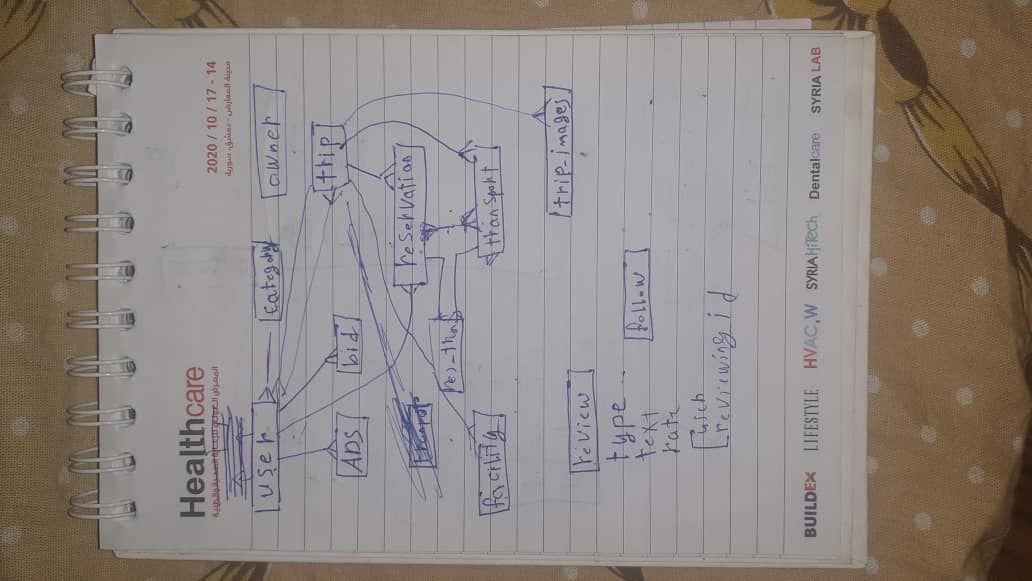 Healthcare
المعرض الدولي للرعاية الصحية والطبية
2020 / 10 / 17 - 14
مدينة المعارض - دمشق، سورية
user
category
owner
trip
ADS
bid
reservation
facility
transport
trip_images
review
type
text
rate
follow
reviewing id
BUILDEX LIFESTYLE HVAC,W SYRIA HiTech Dentalcare SYRIA LAB